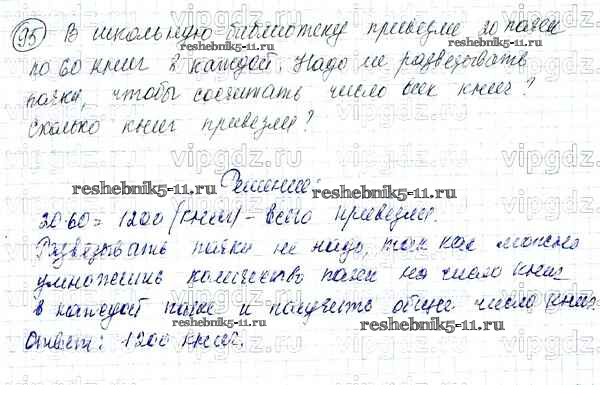 95 В школьную библиотеку привезли 20 пачек
по 60 книг в каждой. Надо ли развязывать
пачки, чтобы сосчитать число всех книг?
Сколько книг привезли?
Решение:
20·60 = 1200 (книг) - всего привезли.
Развязывать пачки не надо, так как можно
умножить количество пачек на число книг
в каждой пачке и получить общее число книг.
Ответ: 1200 книг.
reshebnik5-11.ru
reshebnik5-11.ru
reshebnik5-11.ru
reshebnik5-11.ru
vipgdz.ru